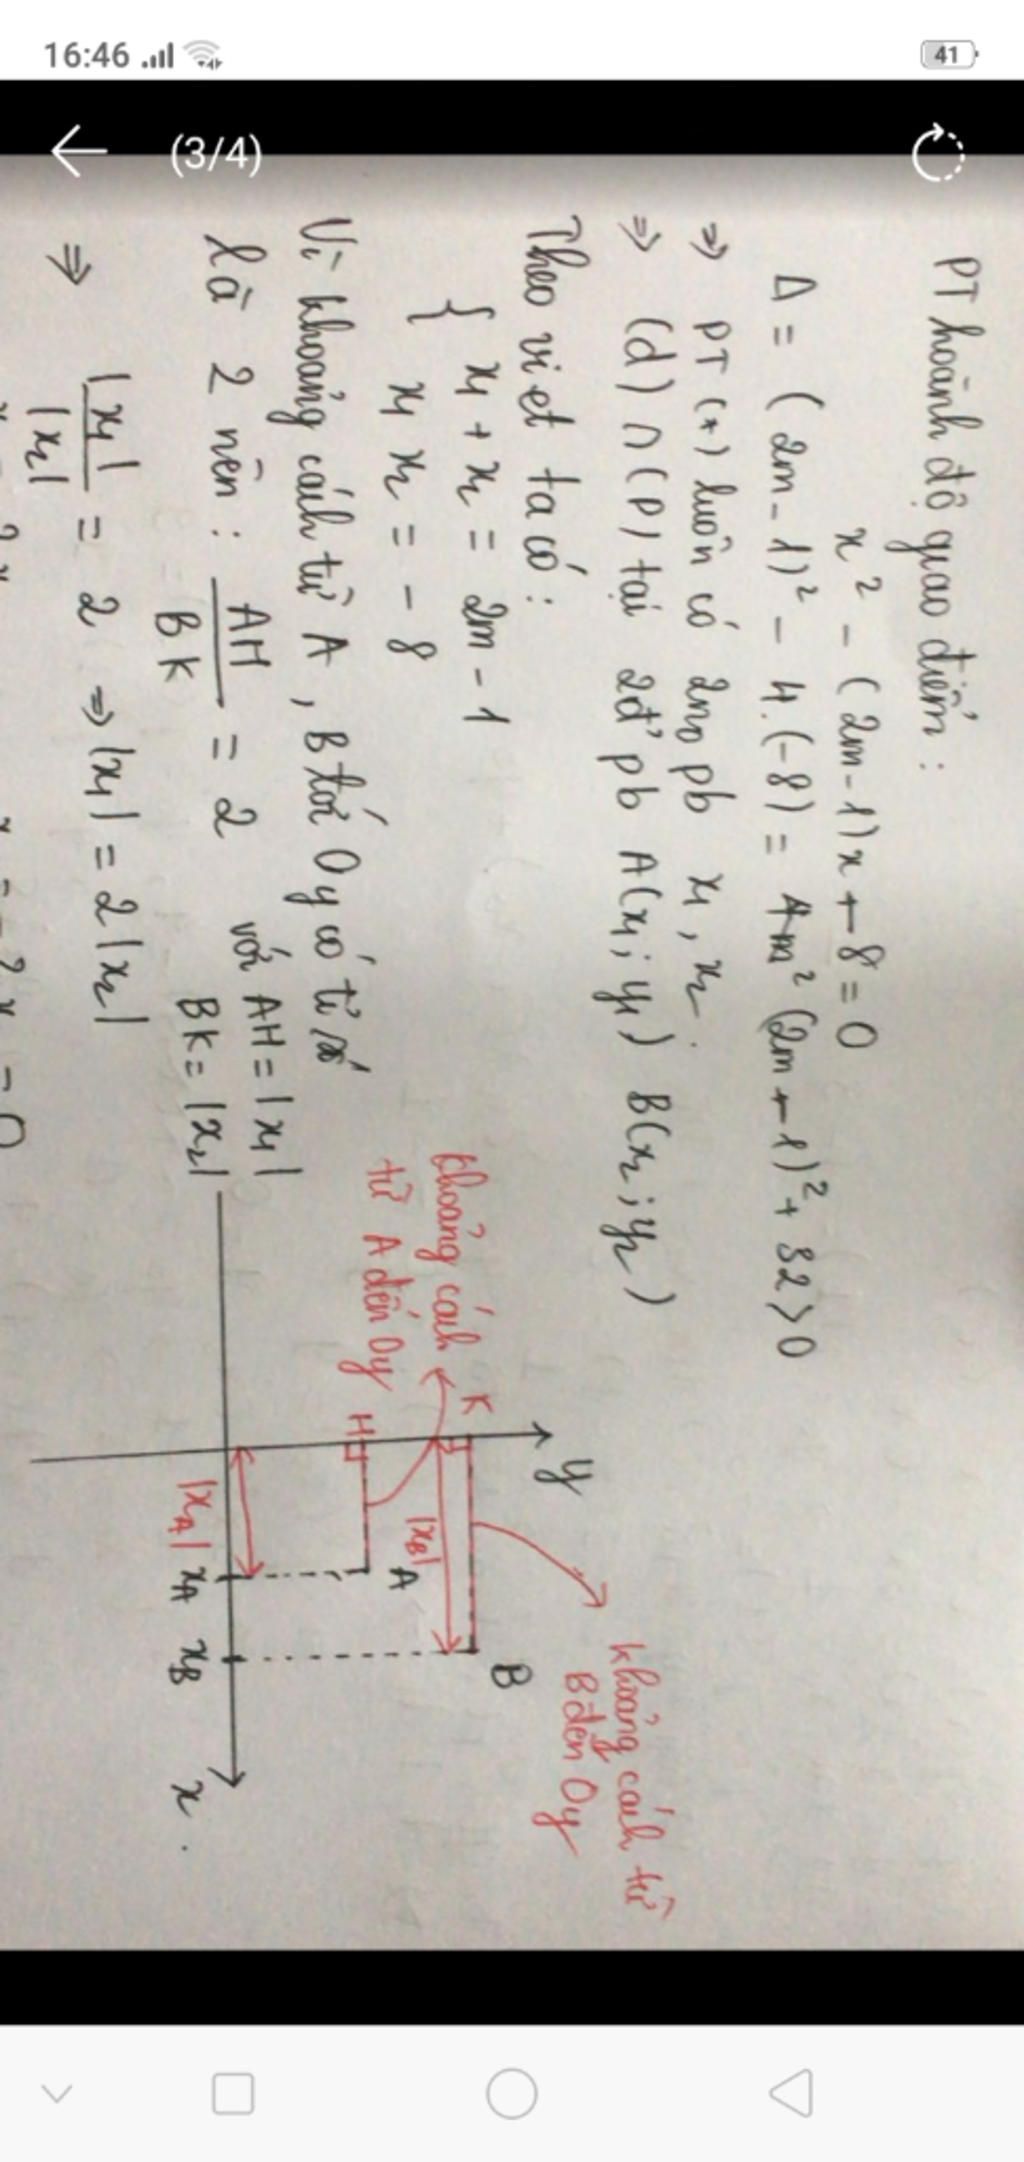 16:46
41
(3/4)
PT hoành độ giao điểm:
x² - (2m-1)x + -8 = 0
Δ = (2m-1)² - 4.(-8) = (2m-1)² + 32 > 0
⇒ PT (*) luôn có 2no pb x₁, x₂.
⇒ (d) ∩ (P) tại 2đ' pb A(x₁; y₁) B(x₂; y₂)
Theo viet ta có:
{ x₁ + x₂ = 2m - 1
x₁ x₂ = -8
Vì khoảng cách từ A, B tới Oy có tỉ số
là 2 nên: AH/BK = 2 với AH = |x₁|
BK = |x₂|
⇒ |x₁|/|x₂| = 2 ⇒ |x₁| = 2|x₂|
y
K
H
A
B
|xB|
|xA|
xA
xB
x
khoảng cách
từ A đến Oy
khoảng cách từ
B đến Oy